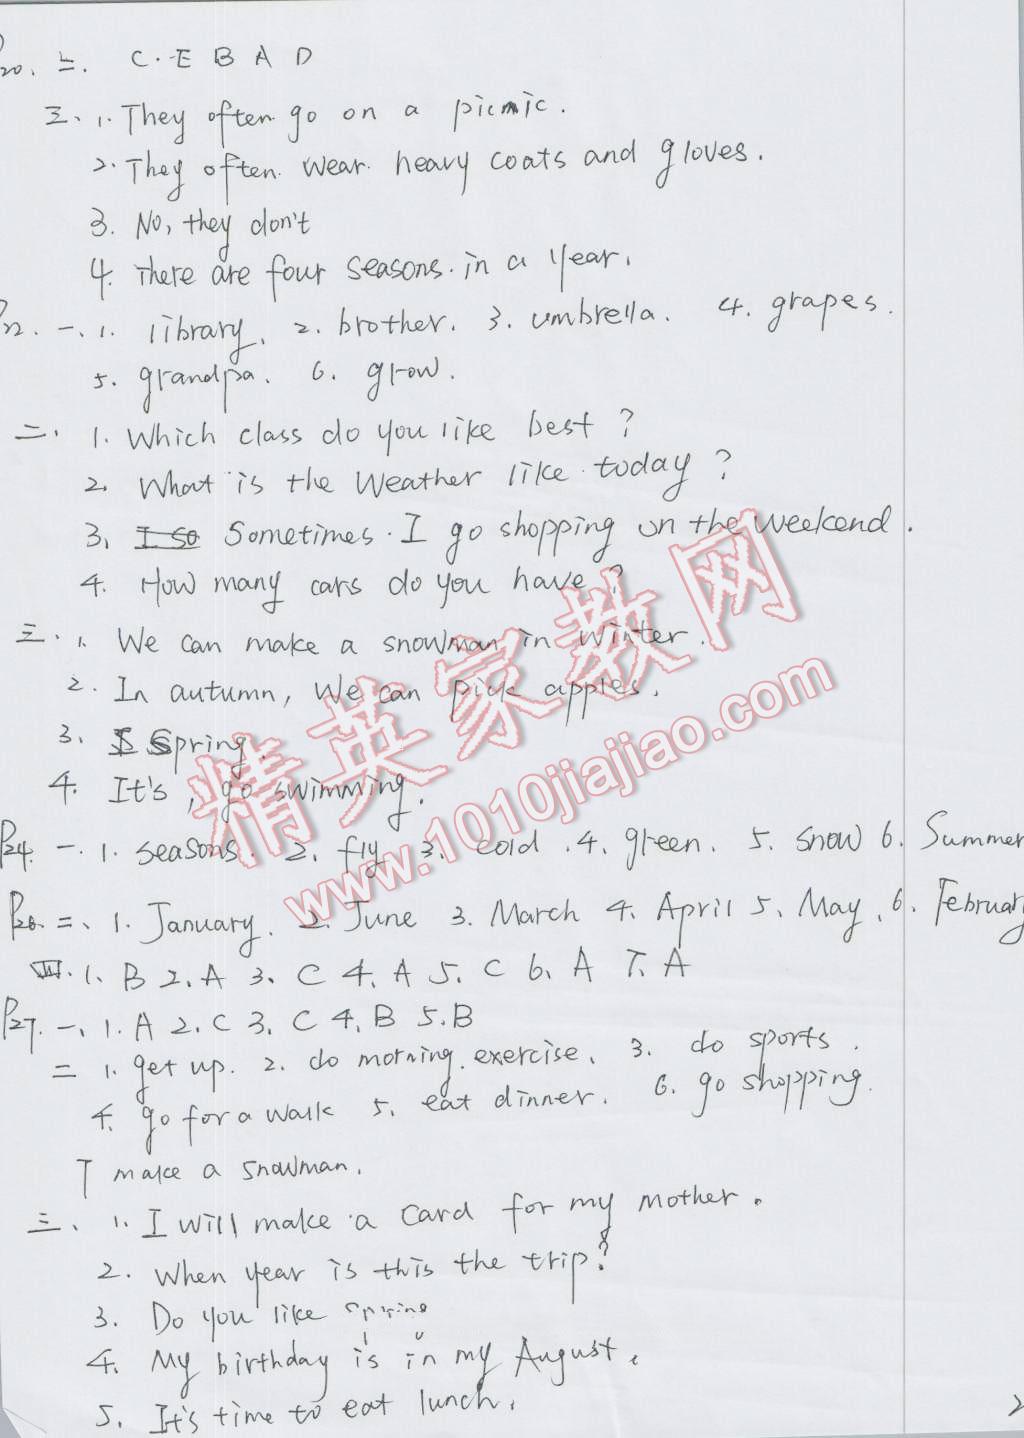 P20. 二. C. E B A D
三、1. They often go on a picnic.
2. They often wear heavy coats and gloves.
3. No, they don't
4. There are four seasons in a year.
P22. 一、1. library. 2. brother. 3. umbrella. 4. grapes.
5. grandpa. 6. grow.
二、1. Which class do you like best?
2. What is the weather like today?
3. I so Sometimes I go shopping on the weekend.
4. How many cars do you have?
三、1. We can make a snowman in winter.
2. In autumn, we can pick apples.
3. Spring.
4. It's, go swimming.
P24. 一. 1. seasons. 2. fly 3. cold. 4. green. 5. snow 6. Summer
P26. 二、1. January. 2. June 3. March 4. April 5. May. 6. February
四. 1. B 2. A 3. C 4. A 5. C 6. A 7. A
P27. 一、1. A 2. C 3. C 4. B 5. B
二 1. get up. 2. do morning exercise. 3. do sports.
4. go for a walk 5. eat dinner. 6. go shopping.
7 make a snowman.
三、1. I will make a card for my mother.
2. When year is this the trip?
3. Do you like spring
4. My birthday is in my August.
5. It's time to eat lunch.
2
精英家教网
www.1010jiajiao.com